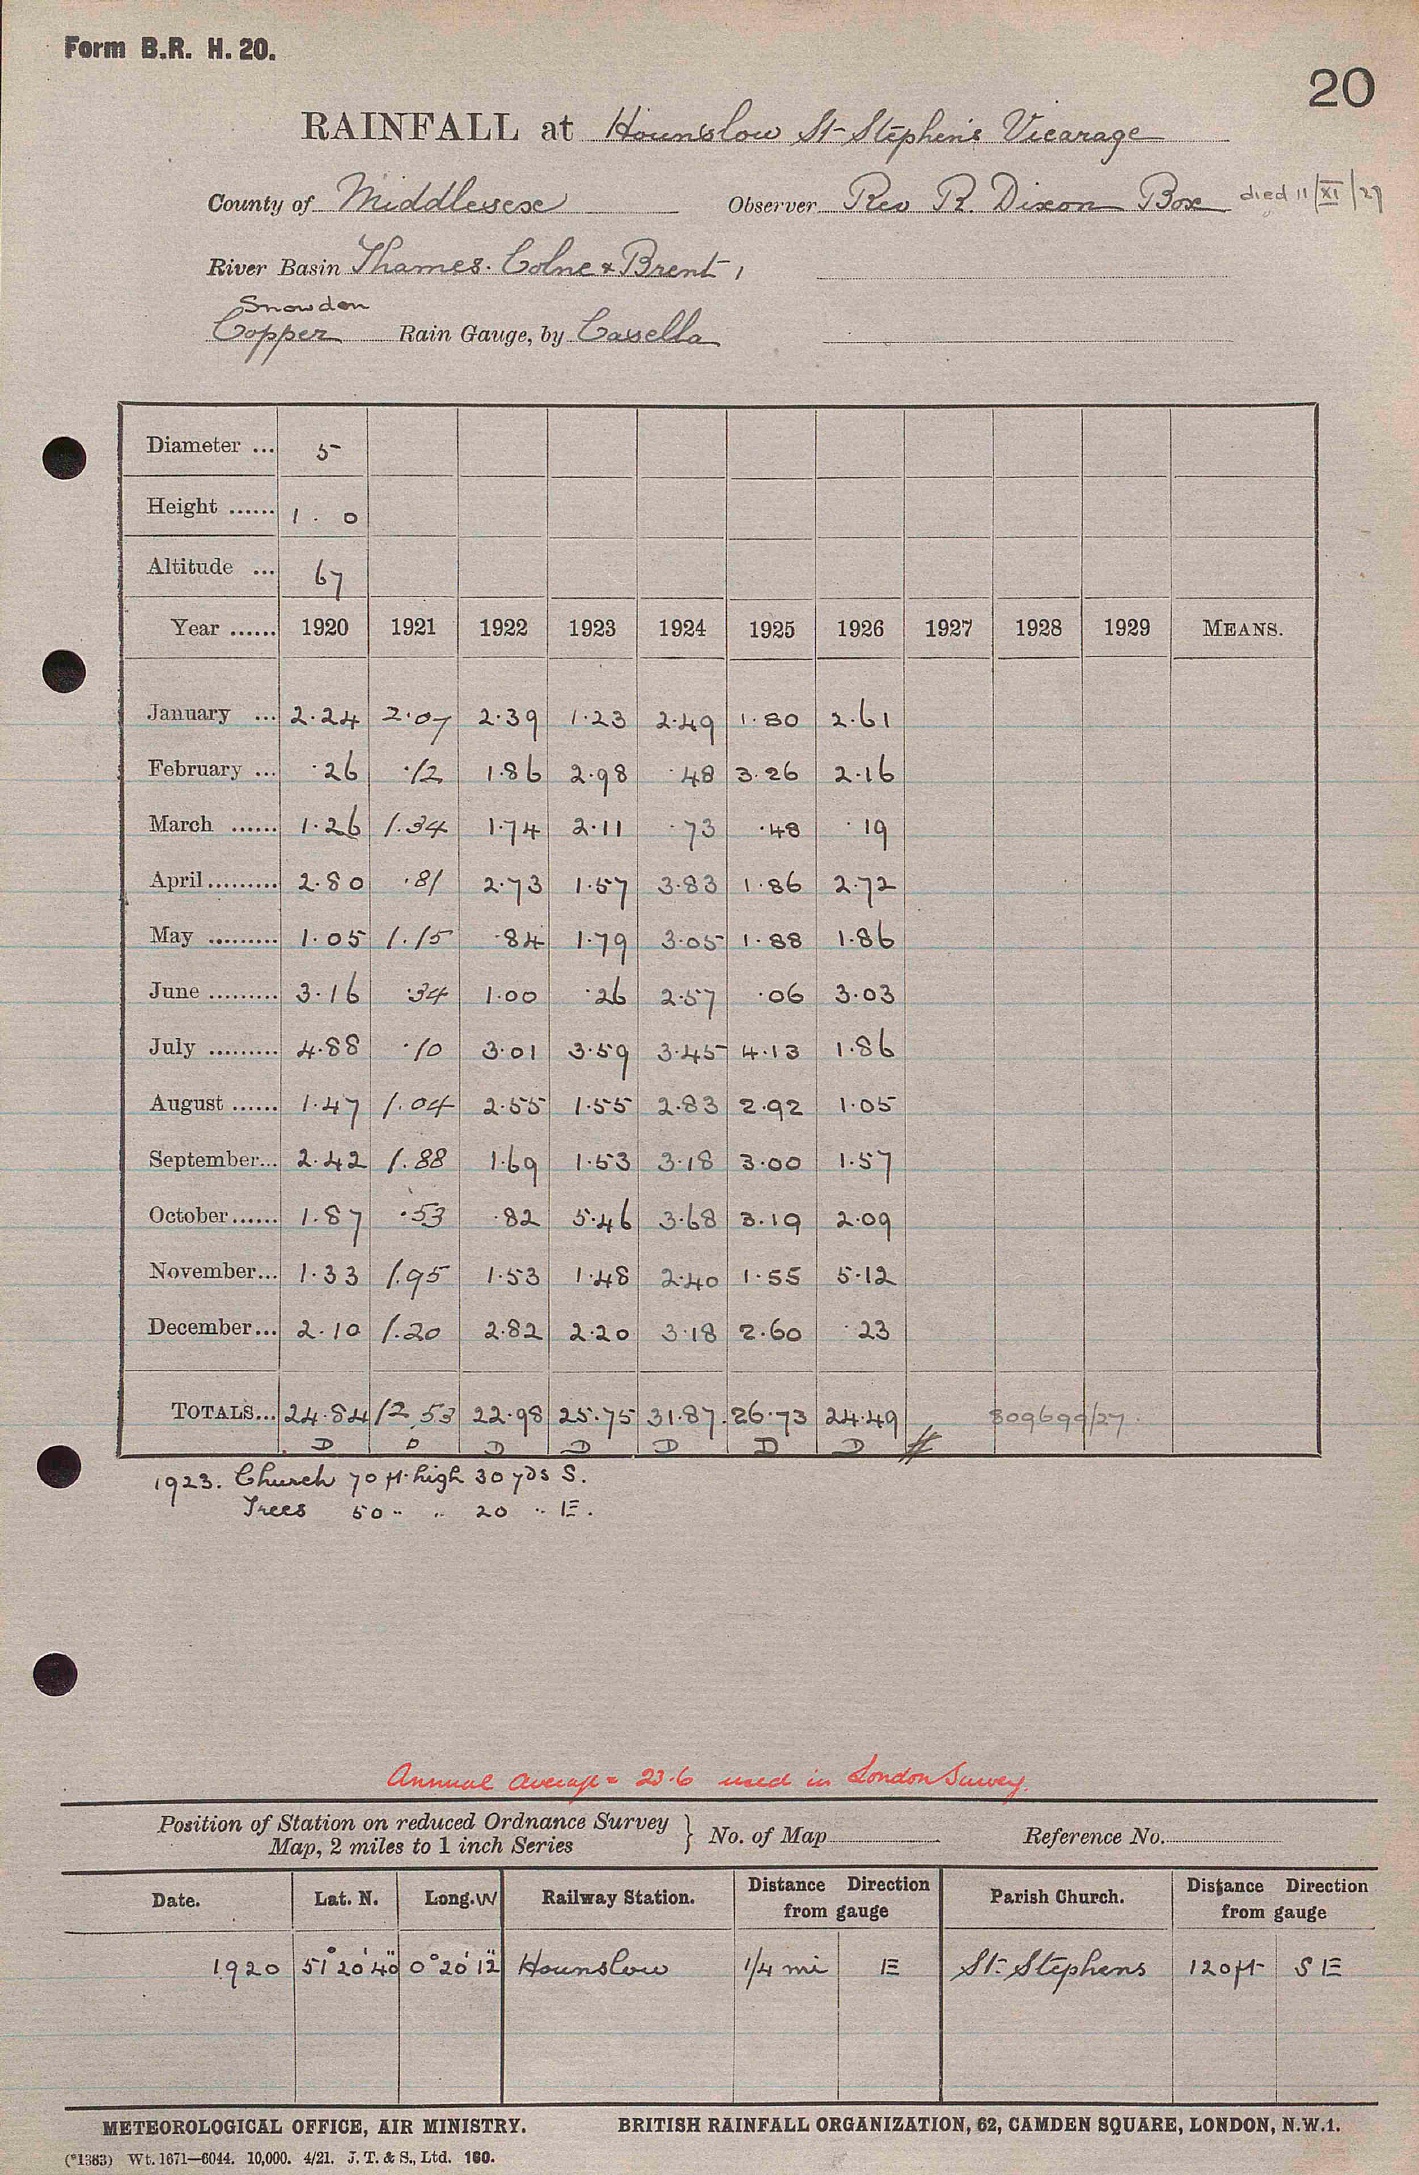 Form B.R. H. 20.
20
RAINFALL at Hounslow St Stephen's Vicarage
County of Middlesex Observer Rev R. Dixon Box died 11/XI/27
River Basin Thames. Colne & Brent
Snowdon
Copper Rain Gauge, by Casella
Diameter ... 5
Height ...... 1 . 0
Altitude ... 67
Year ...... 1920 1921 1922 1923 1924 1925 1926 1927 1928 1929 MEANS.
January ... 2.24 2.07 2.39 1.23 2.49 1.80 2.61
February ... .26 .12 1.86 2.98 .48 3.26 2.16
March ...... 1.26 1.34 1.74 2.11 .73 .48 .19
April ......... 2.80 .81 2.73 1.57 3.83 1.86 2.72
May ......... 1.05 1.15 .84 1.79 3.05 1.88 1.86
June ......... 3.16 .34 1.00 .26 2.57 .06 3.03
July ......... 4.88 .10 3.01 3.59 3.45 4.13 1.86
August ...... 1.47 1.04 2.55 1.55 2.83 2.92 1.05
September... 2.42 1.88 1.69 1.53 3.18 3.00 1.57
October ...... 1.87 .53 .82 5.46 3.68 3.19 2.09
November... 1.33 1.95 1.53 1.48 2.40 1.55 5.12
December... 2.10 1.20 2.82 2.20 3.18 2.60 .23
TOTALS... 24.84 12.53 22.98 25.75 31.87 26.73 24.49 809699/27.
D D D D D D D
1923. Church 70 ft. high 30 yds S.
Trees 50 " " 20 " E.
Annual average = 23.6 used in London Survey.
Position of Station on reduced Ordnance Survey
Map, 2 miles to 1 inch Series } No. of Map Reference No.
Date. Lat. N. Long. W Railway Station. Distance Direction from gauge Parish Church. Distance Direction from gauge
1920 51° 20' 40" 0° 20' 12" Hounslow 1/4 mi E St. Stephens 120 ft S E
METEOROLOGICAL OFFICE, AIR MINISTRY. BRITISH RAINFALL ORGANIZATION, 62, CAMDEN SQUARE, LONDON, N.W.1.
(*1383) Wt. 1671—6044. 10,000. 4/21. J. T. & S., Ltd. 160.